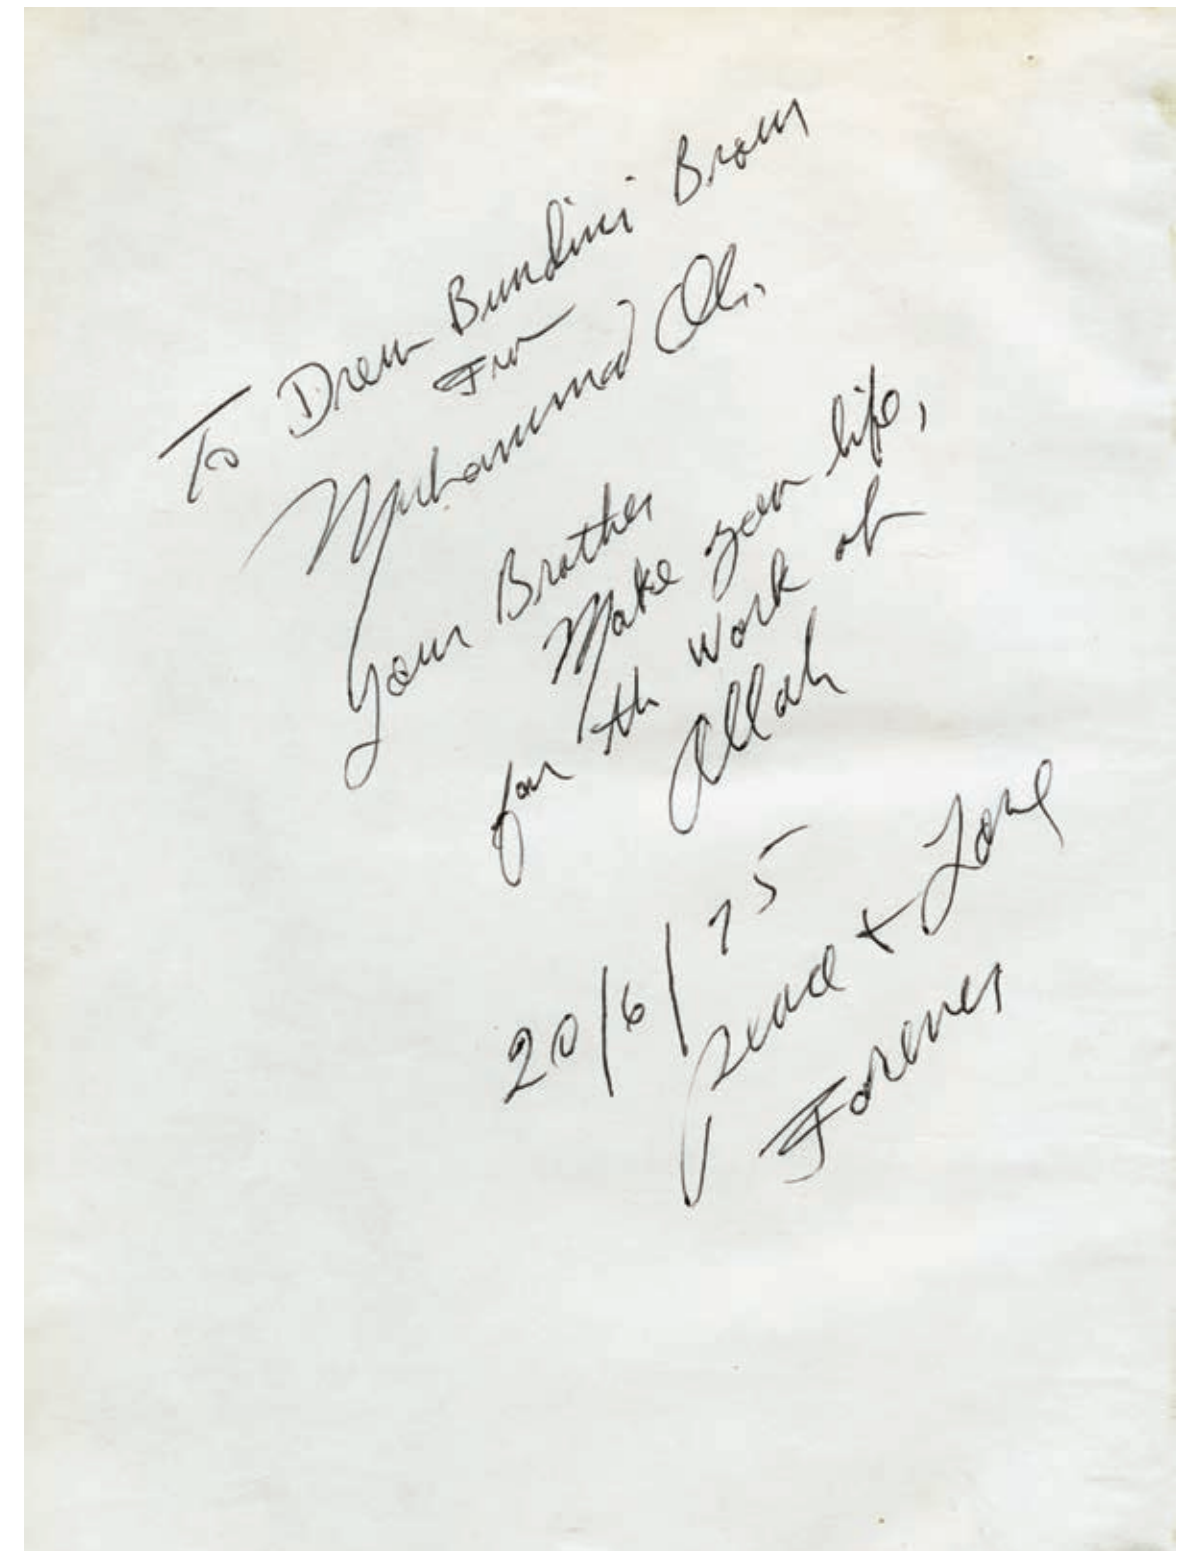 To Drew Bundini Brown
From
Muhammad Ali
Your Brother
Make your life,
for the work of
Allah
20/6/75
Peace + Love
Forever